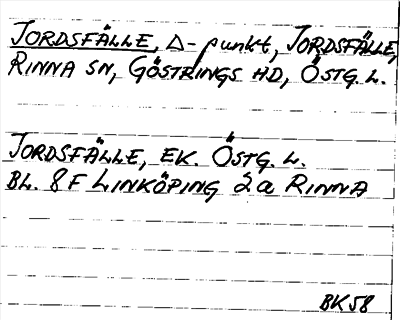 JORDSFÄLLE, △-punkt, JORDSFÄLLE,
RINNA SN, GÖSTRINGS HD, ÖSTG. L.
JORDSFÄLLE, EK. ÖSTG. L.
BL. 8F LINKÖPING 2a RINNA
BK58